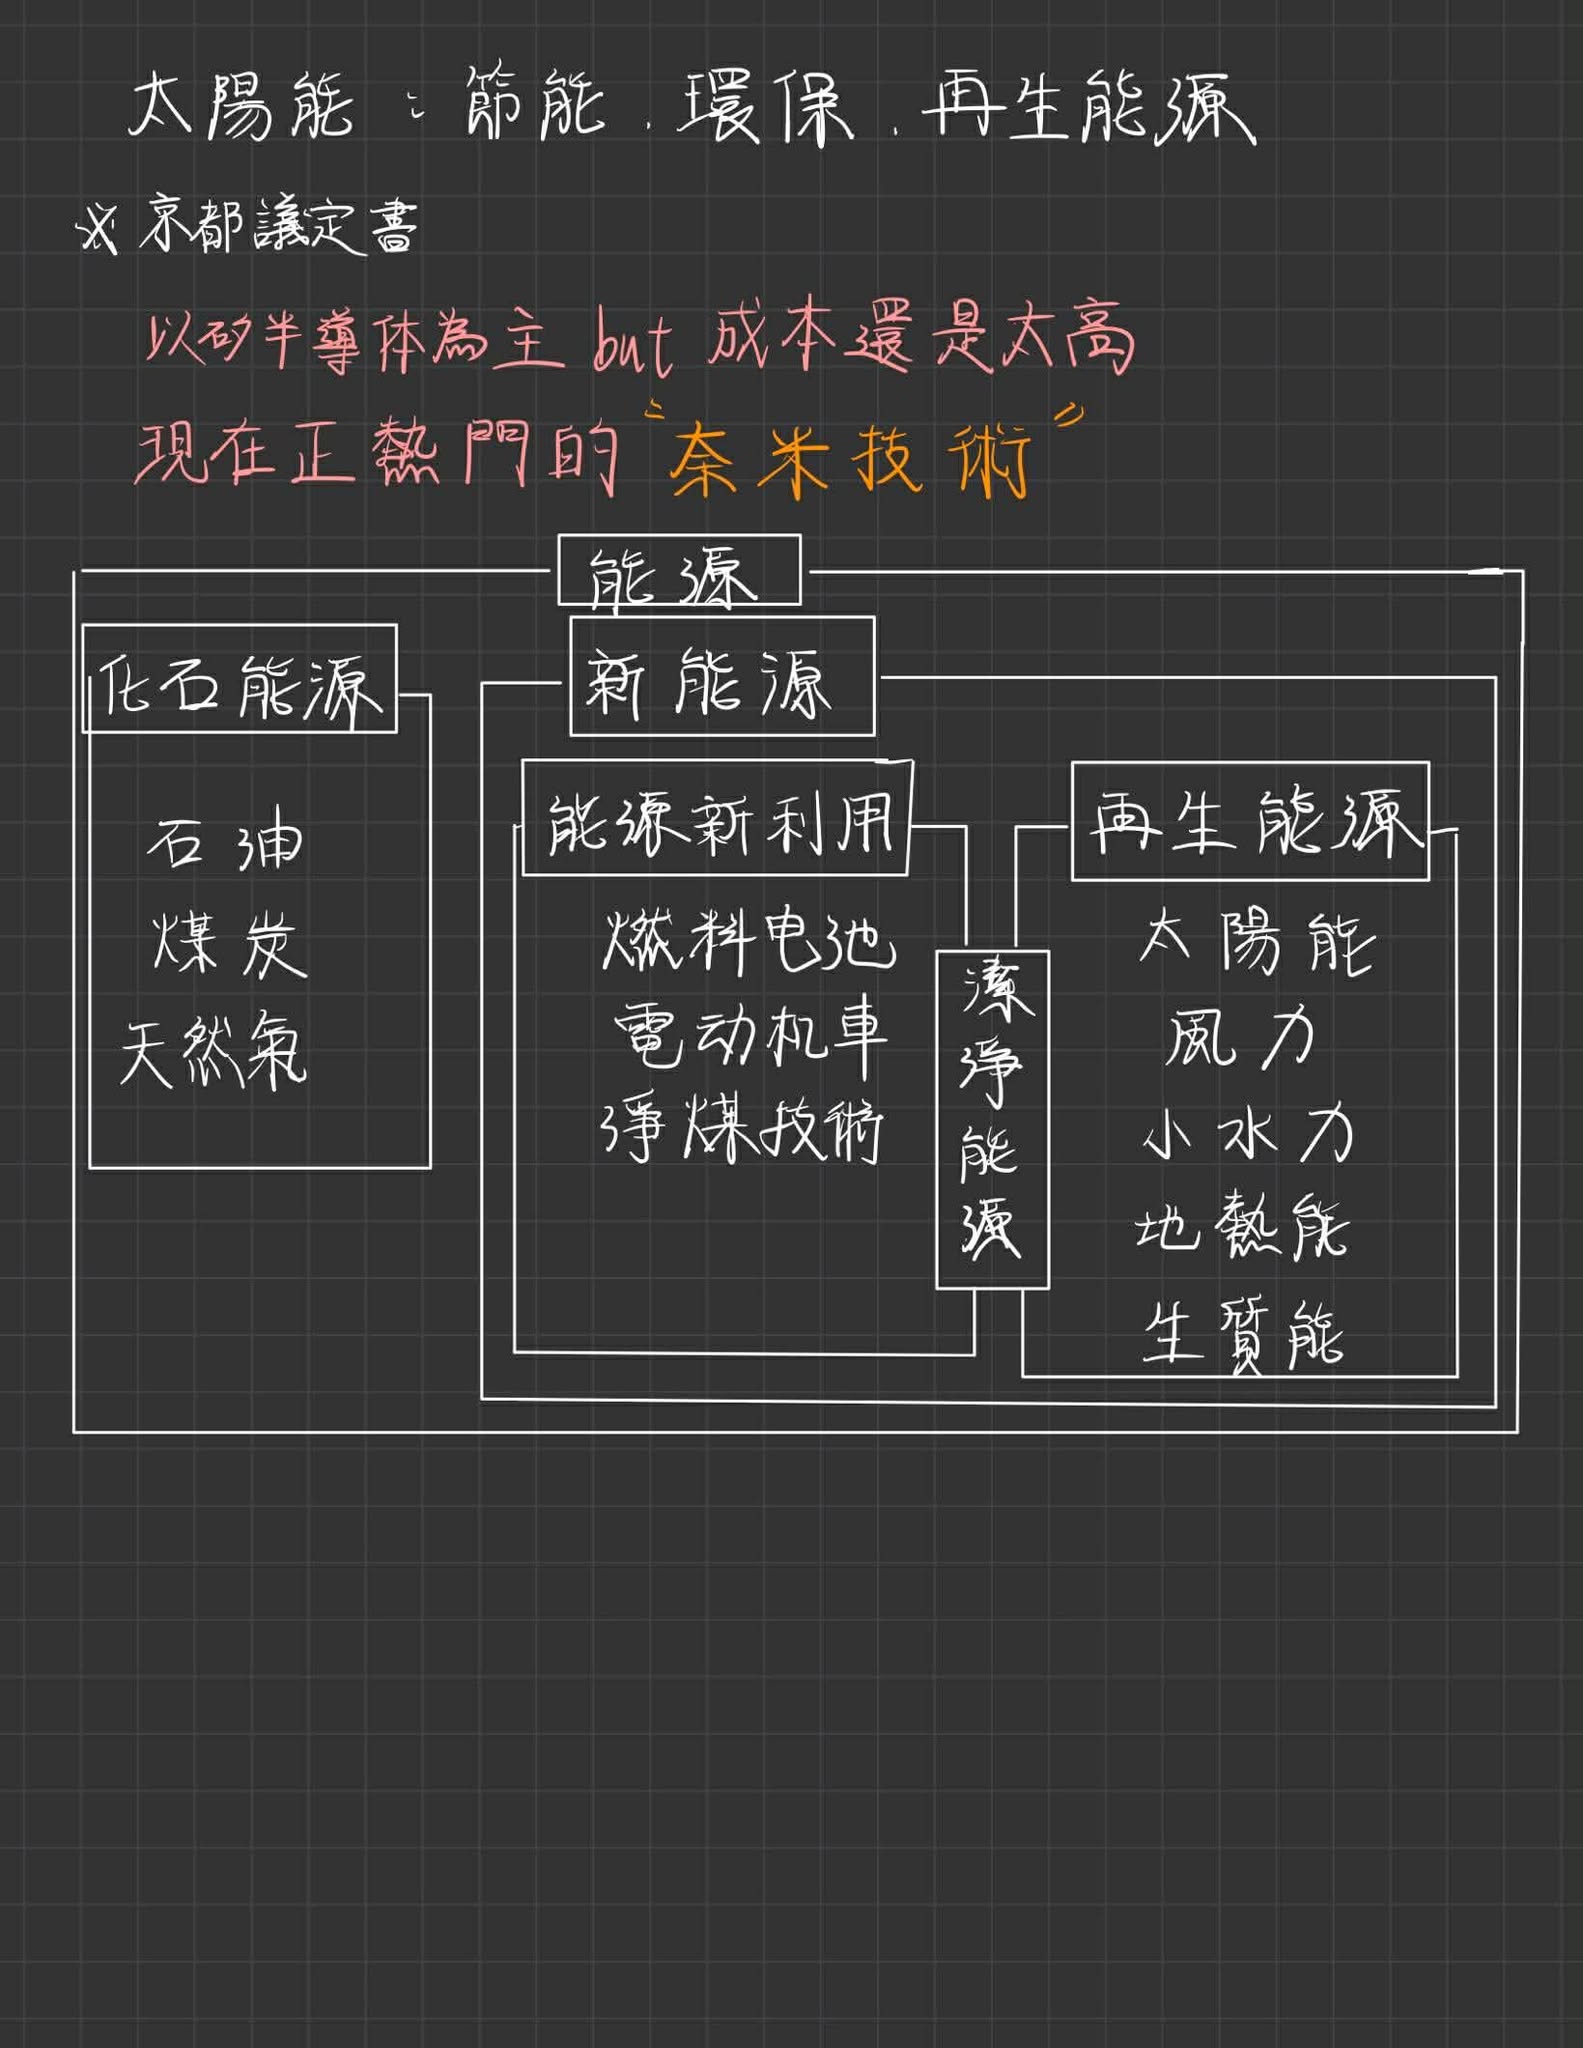 太陽能：節能、環保、再生能源
※京都議定書
以矽半導体為主 but 成本還是太高
現在正熱門的"奈米技術"
能源
化石能源
石油
煤炭
天然氣
新能源
能源新利用
燃料电池
電动机車
淨煤技術
潔淨能源
再生能源
太陽能
風力
小水力
地熱能
生質能